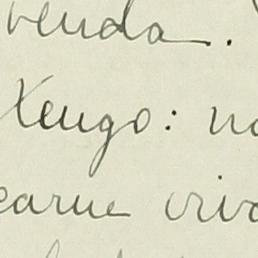 venda.
Xengo: no
carne viv